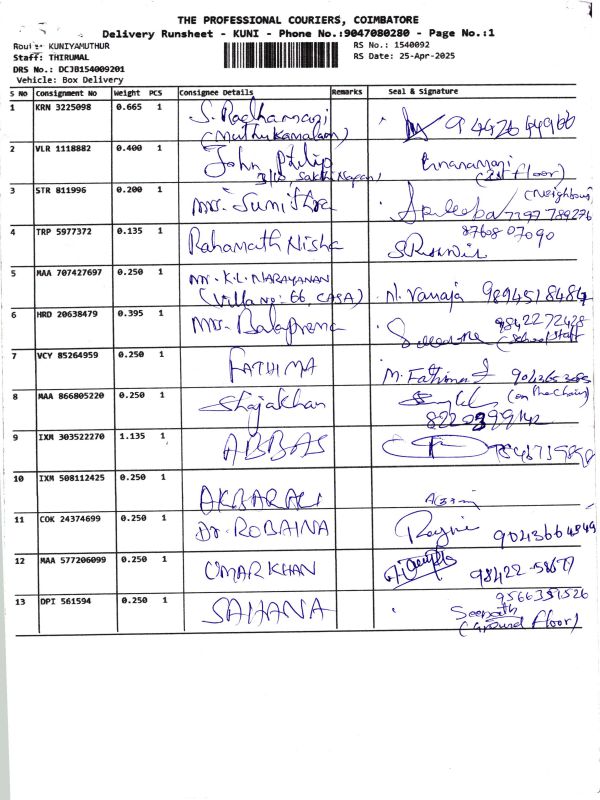 THE PROFESSIONAL COURIERS, COIMBATORE
Delivery Runsheet - KUNI - Phone No.:9047080280 - Page No.:1
Route: KUNIYAMUTHUR RS No.: 1540092
Staff: THIRUMAL RS Date: 25-Apr-2025
DRS No.: DCJB154009201
Vehicle: Box Delivery
S No Consignment No Weight PCS Consignee Details Remarks Seal & Signature
1 KRN 3225098 0.665 1 S. Radhamani
(Muthukamalam)
2 VLR 1118882 0.400 1 John Philip (2st floor)
3 STR 811996 0.200 1 Mrs. Sumithra (Neighbour)
7397789276
4 TRP 5977372 0.135 1 Rahamath Nisha 87608 07090
5 MAA 707427697 0.250 1 Mr. K.L. NARAYANAN
(Villa no: 66, CASA) N. Vanaja 9894518484
6 HRD 20638479 0.395 1 Mrs. Balaprema 9842272428
(School staff
7 VCY 85264959 0.250 1 FATHIMA M. Fathima
8 MAA 866805220 0.250 1 Shajakhan (on the chair)
9 IXM 303522270 1.135 1 ABBAS
10 IXM 508112425 0.250 1 AKBAR ALI
11 COK 24374699 0.250 1 Dr. ROBAINA
12 MAA 577206099 0.250 1 UMAR KHAN 98422-58677
13 DPI 561594 0.250 1 SAHANA 9566351526
(Ground floor)